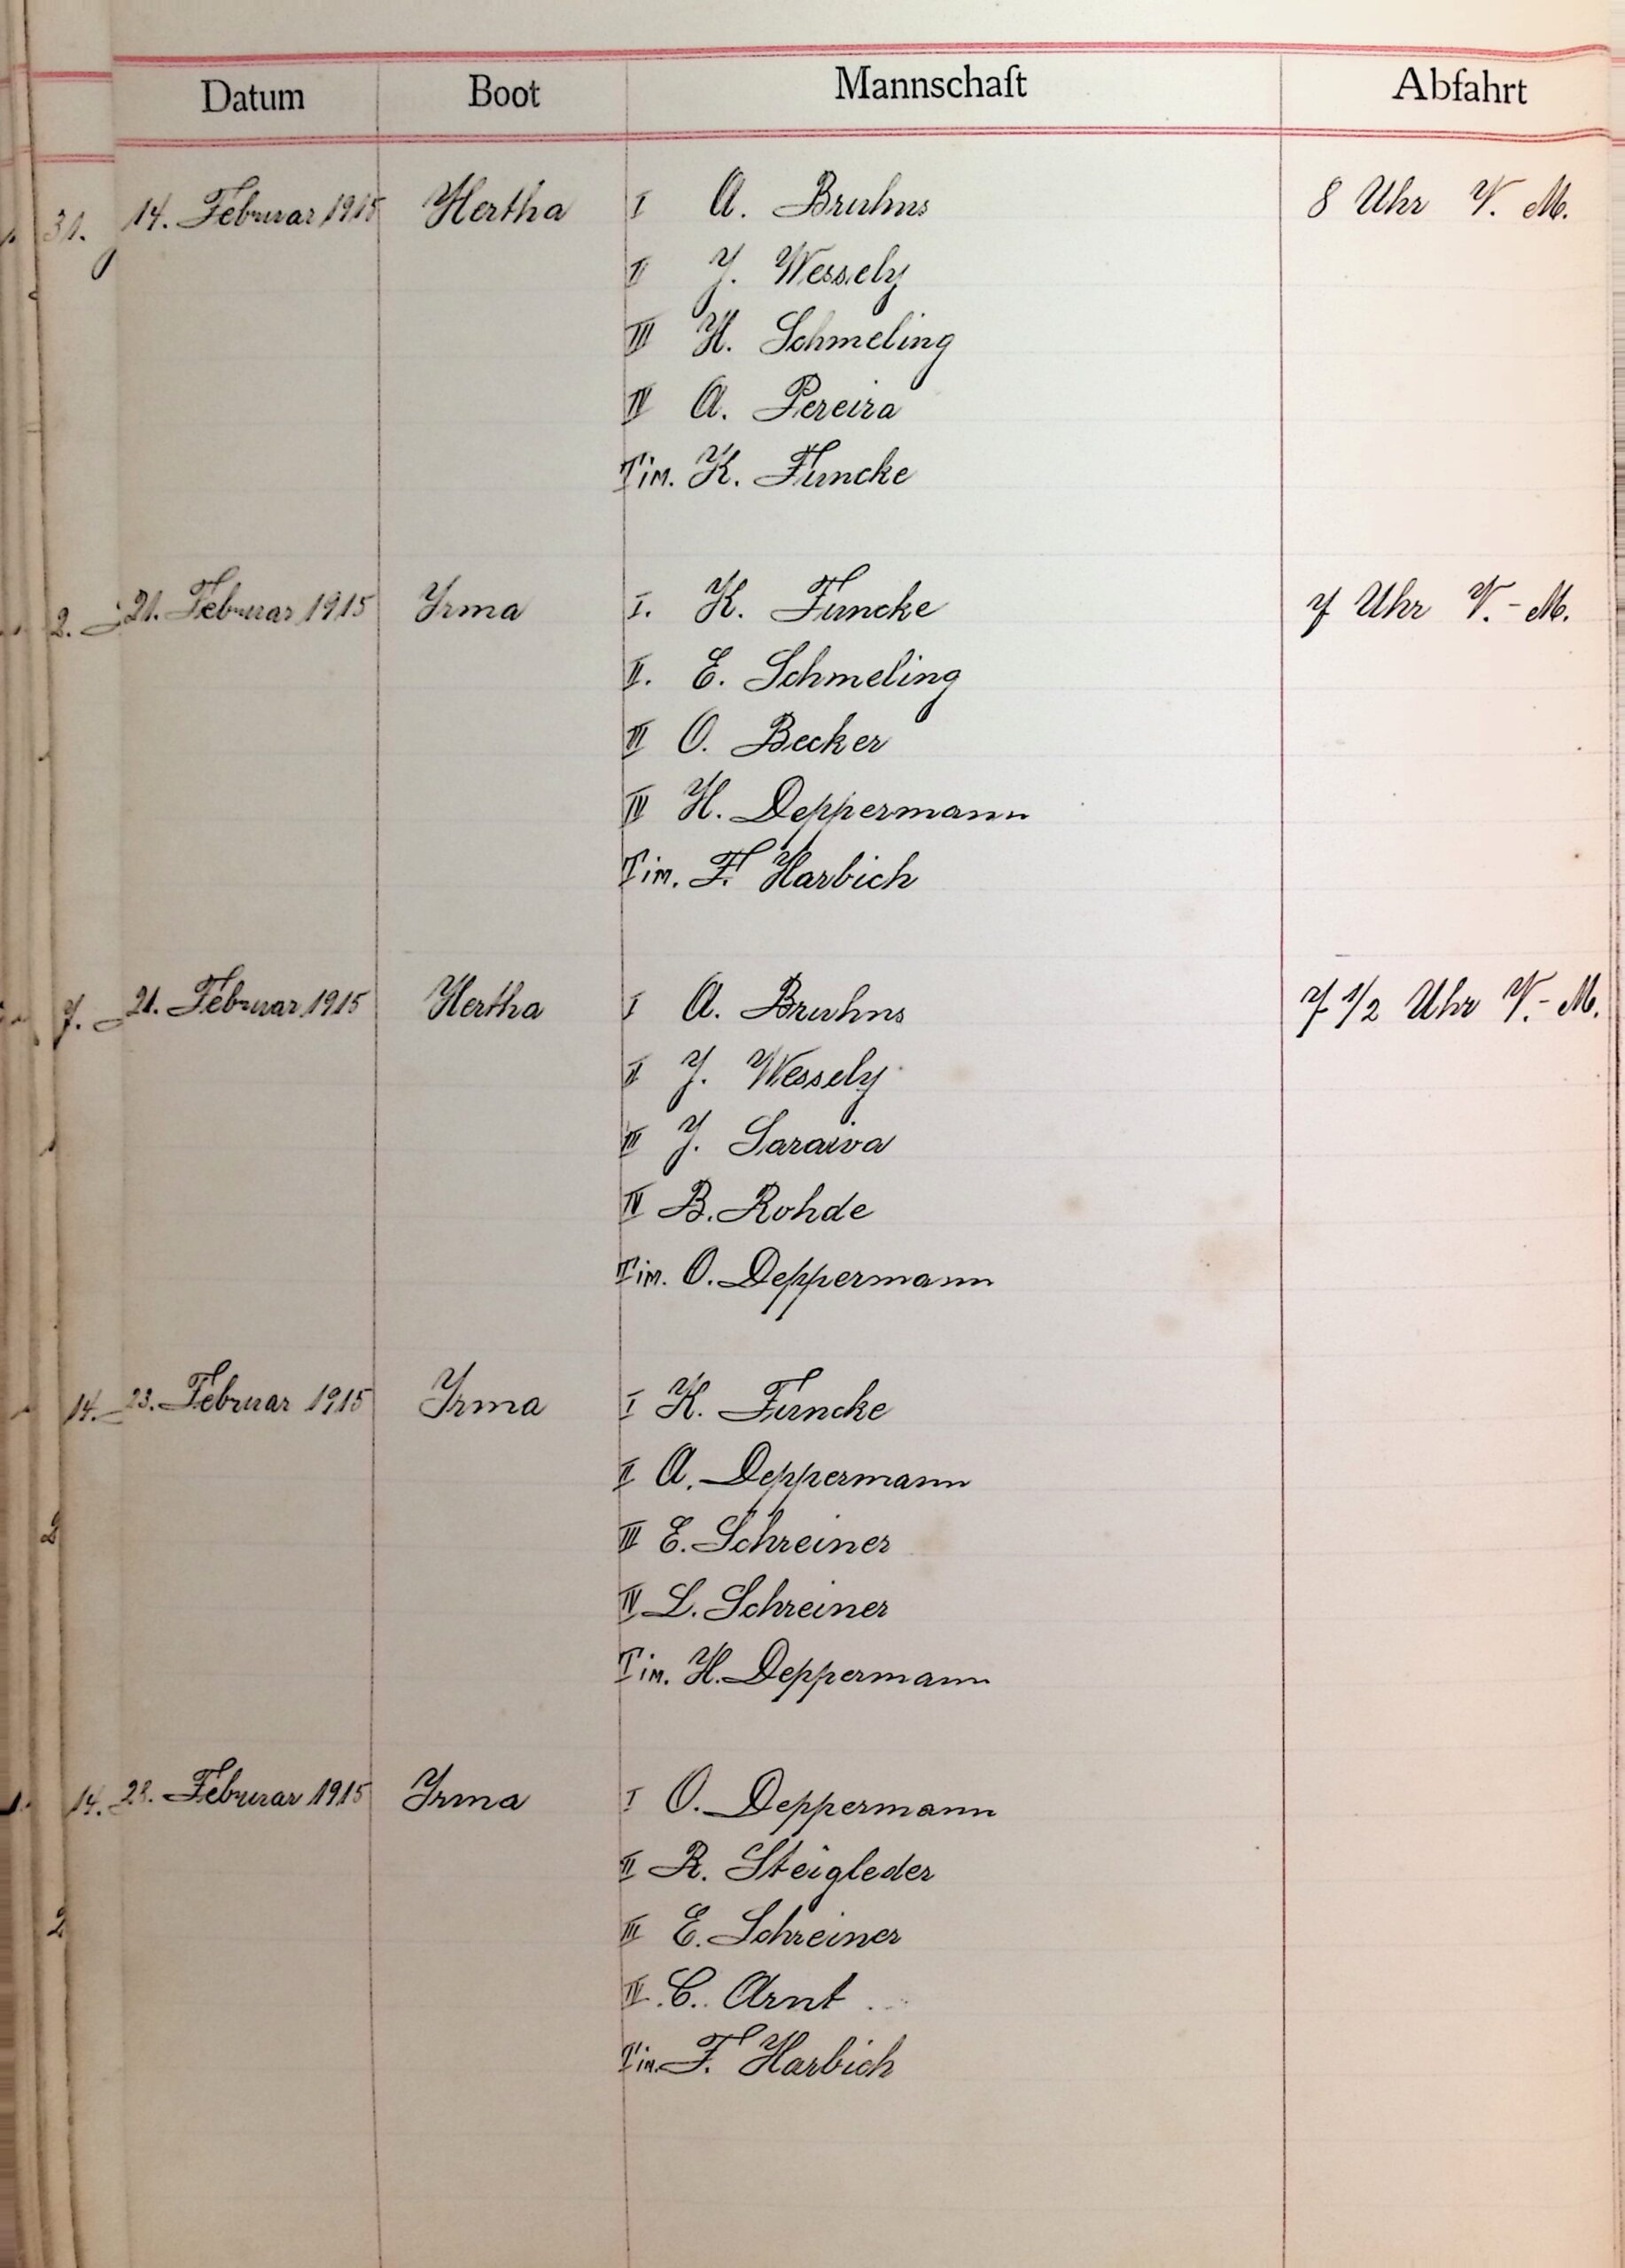 Datum Boot Mannschaft Abfahrt
31. 14. Februar 1915 Hertha I A. Bruhns 8 Uhr V. M.
II J. Wessely
III H. Schmeling
IV A. Pereira
Tim. K. Funcke
2. 21. Februar 1915 Irma I. K. Funcke 7 Uhr V.-M.
II. E. Schmeling
III O. Becker
IV H. Deppermann
Tim. F. Harbich
7. 21. Februar 1915 Hertha I A. Bruhns 7 1/2 Uhr V.-M.
II J. Wessely
III J. Saraiva
IV B. Rohde
Tim. O. Deppermann
14. 23. Februar 1915 Irma I K. Funcke
II A. Deppermann
III E. Schreiner
IV L. Schreiner
Tim. H. Deppermann
14. 23. Februar 1915 Irma I O. Deppermann
II R. Steigleder
III E. Schreiner
IV. C. Arnt
Tim. F. Harbich